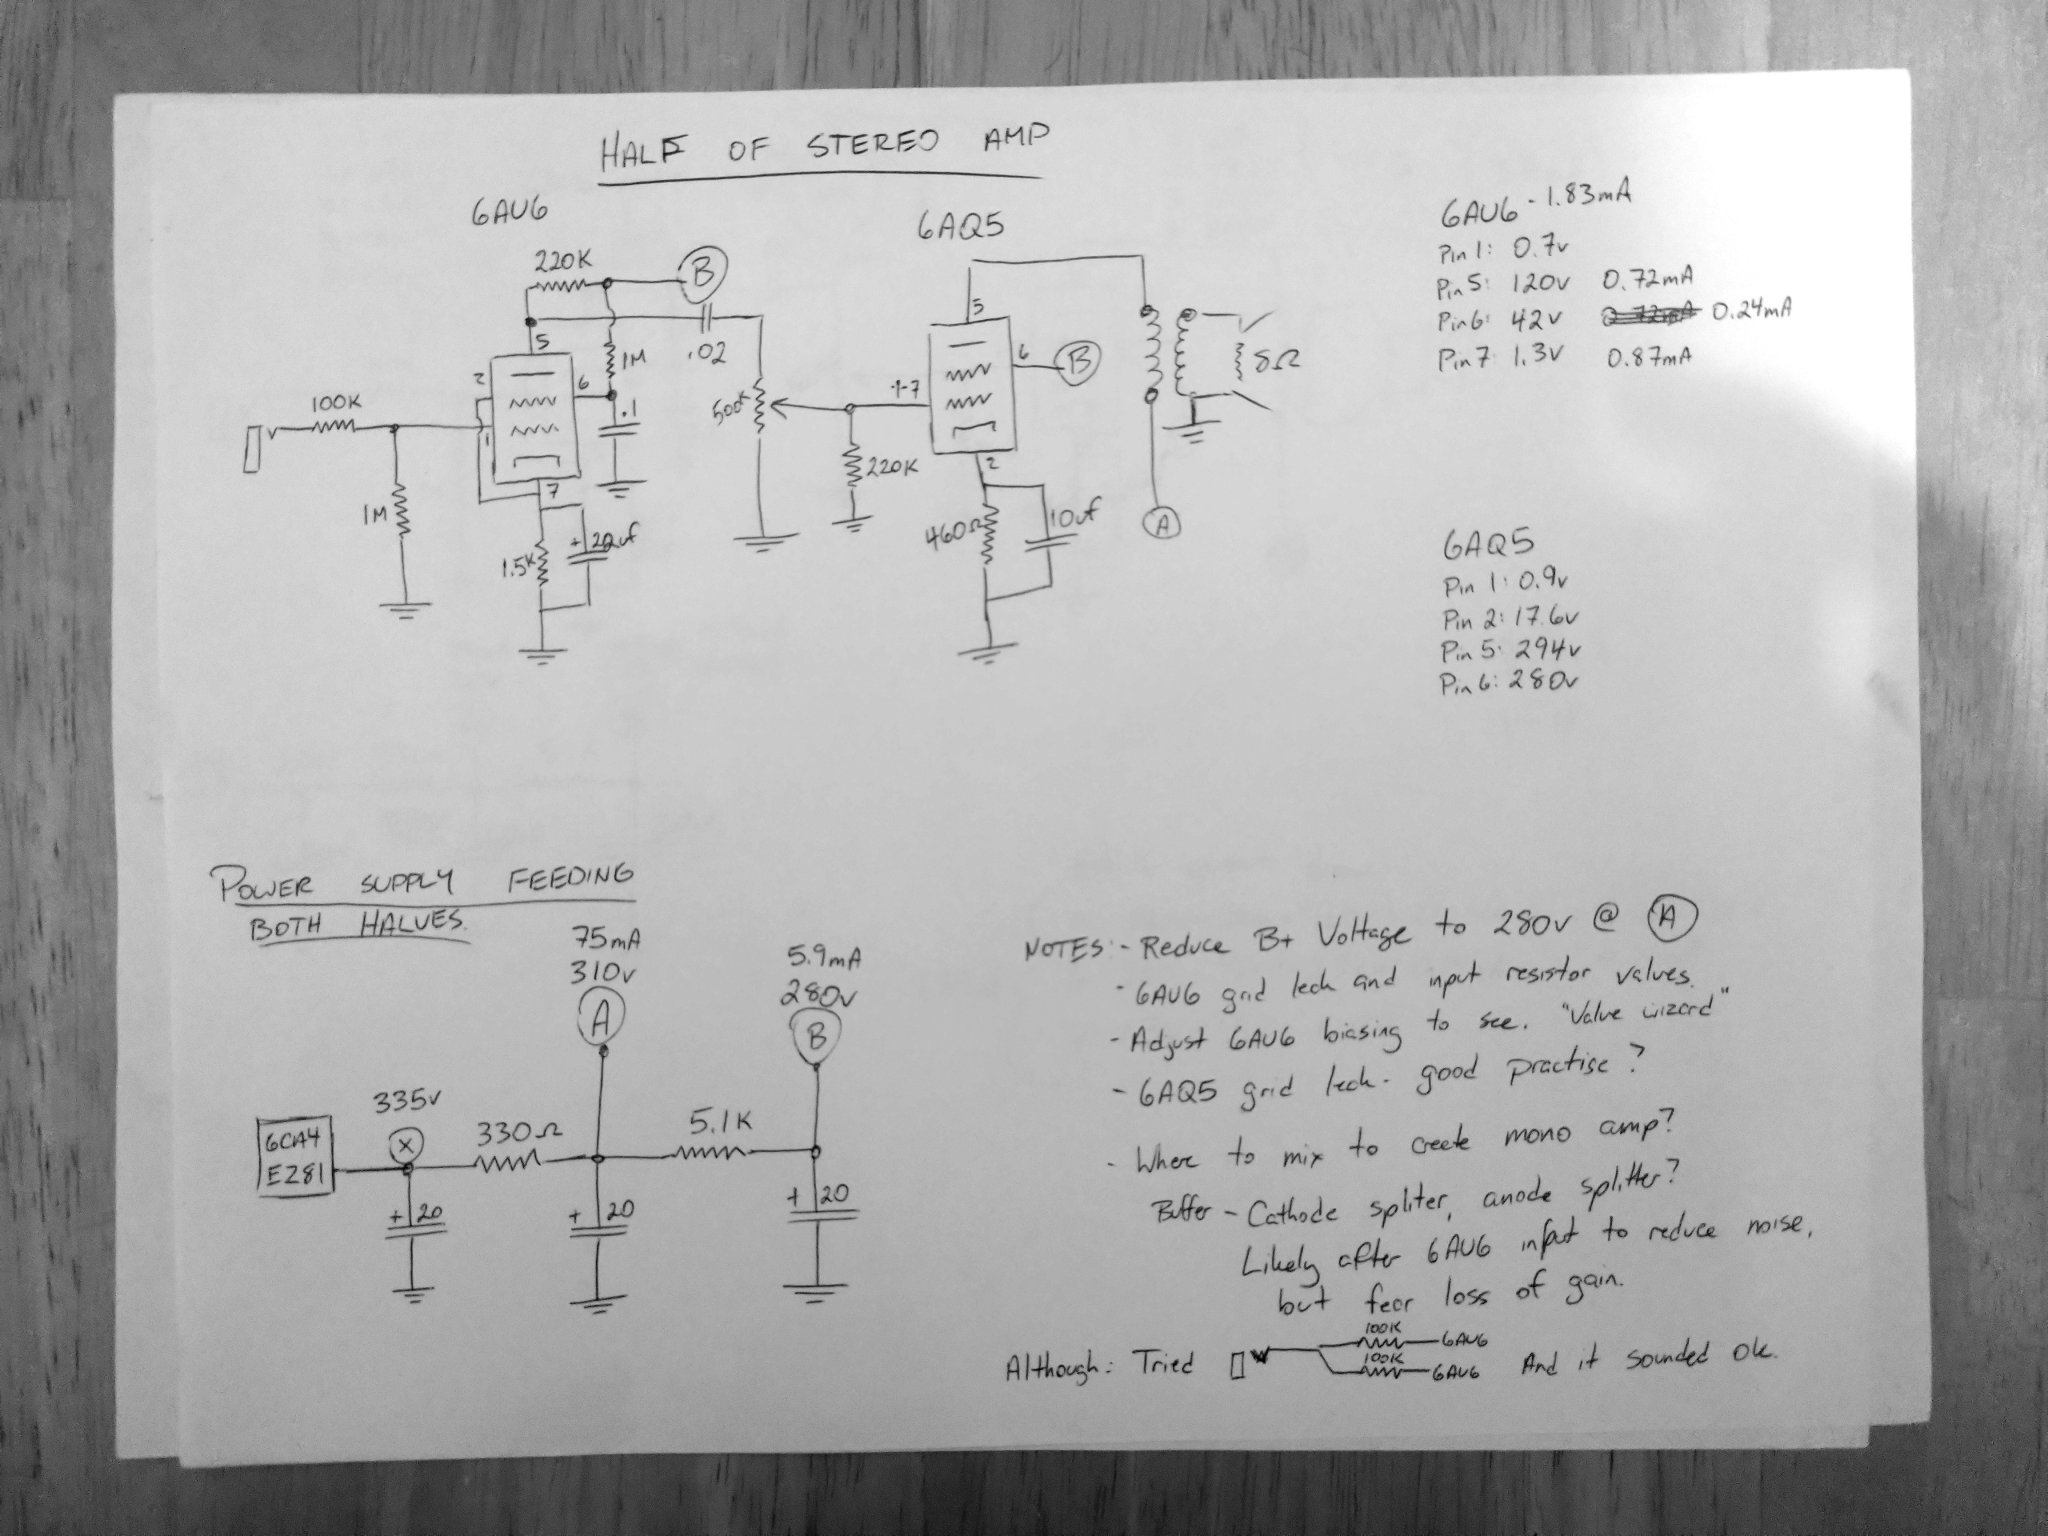 HALF OF STEREO AMP
6AU6
220K
B
5
.02
1M
2
6
1
.1
100K
1M
7
1.5K
+ 22uf
500K
6AQ5
5
6
B
1-7
220K
2
460Ω
10uf
8Ω
A
6AU6 - 1.83mA
Pin 1: 0.7v
Pin 5: 120v 0.72mA
Pin 6: 42v 0.72mA 0.24mA
Pin 7 1.3v 0.87mA
6AQ5
Pin 1: 0.9v
Pin 2: 17.6v
Pin 5: 294v
Pin 6: 280v
POWER SUPPLY FEEDING
BOTH HALVES.
75mA
310v
A
5.9mA
280v
B
335v
X
6CA4
EZ81
330Ω
5.1K
+ 20
+ 20
+ 20
NOTES: - Reduce B+ Voltage to 280v @ A
- 6AU6 grid leak and input resistor values.
- Adjust 6AU6 biasing to see. "Valve wizard"
- 6AQ5 grid leak - good practise?
- Where to mix to create mono amp?
Buffer - Cathode spliter, anode splitter?
Likely after 6AU6 input to reduce noise,
but fear loss of gain.
Although: Tried 100K 6AU6
100K 6AU6 And it sounded ok.